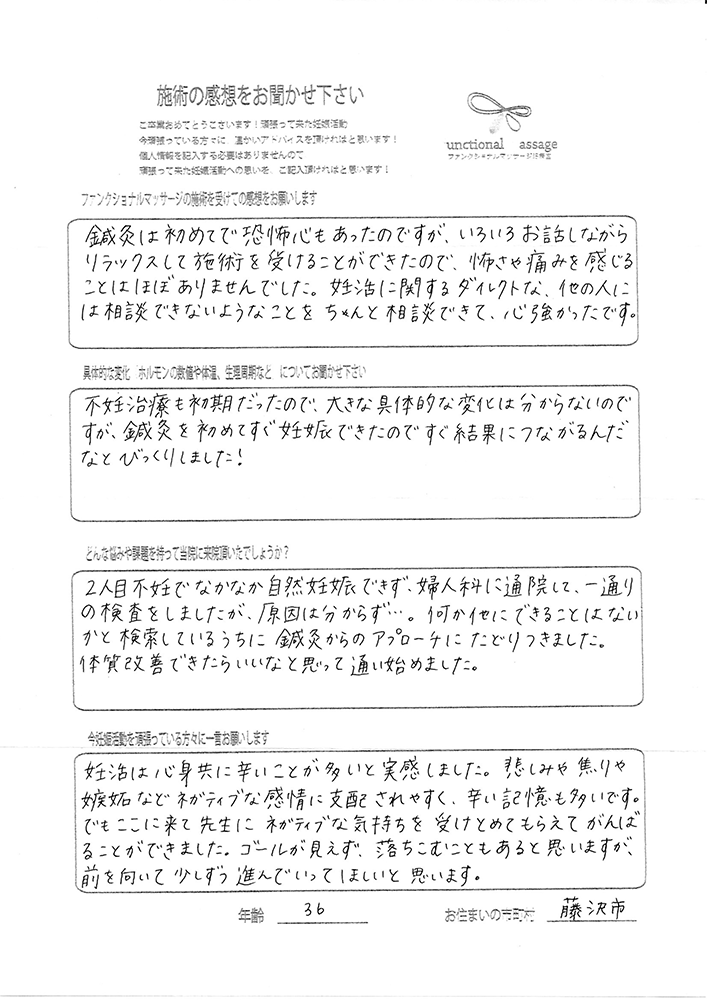 施術の感想をお聞かせ下さい
ご卒業おめでとうございます！頑張って来た妊娠活動
今頑張っている方々に　温かいアドバイスを頂ければと思います！
個人情報を記入する必要はありませんので
頑張って来た妊娠活動への思いを、ご記入頂ければと思います！
unctional assage
ファンクショナルマッサージ治療室
ファンクショナルマッサージの施術を受けての感想をお願いします
鍼灸は初めてで恐怖心もあったのですが、いろいろお話しながら
リラックスして施術を受けることができたので、怖さや痛みを感じる
ことはほぼありませんでした。妊活に関するダイレクトな、他の人に
は相談できないようなことをちゃんと相談できて、心強かったです。
具体的な変化　ホルモンの数値や体温、生理周期など　についてお聞かせ下さい
不妊治療も初期だったので、大きな具体的な変化は分からないので
すが、鍼灸を初めてすぐ妊娠できたのですぐ結果につながるんだ
なとびっくりしました！
どんな悩みや課題を持って当院に来院頂いたでしょうか？
2人目不妊でなかなか自然妊娠できず、婦人科に通院して、一通り
の検査をしましたが、原因は分からず…。何か他にできることはない
かと検索しているうちに鍼灸からのアプローチにたどりつきました。
体質改善できたらいいなと思って通い始めました。
今妊娠活動を頑張っている方々に一言お願いします
妊活は心身共に辛いことが多いと実感しました。悲しみや焦りや
嫉妬などネガティブな感情に支配されやすく、辛い記憶も多いです。
でもここに来て先生にネガティブな気持ちを受けとめてもらえてがんば
ることができました。ゴールが見えず、落ちこむこともあると思いますが、
前を向いて少しずつ進んでいってほしいと思います。
年齢 36 お住まいの市町村 藤沢市